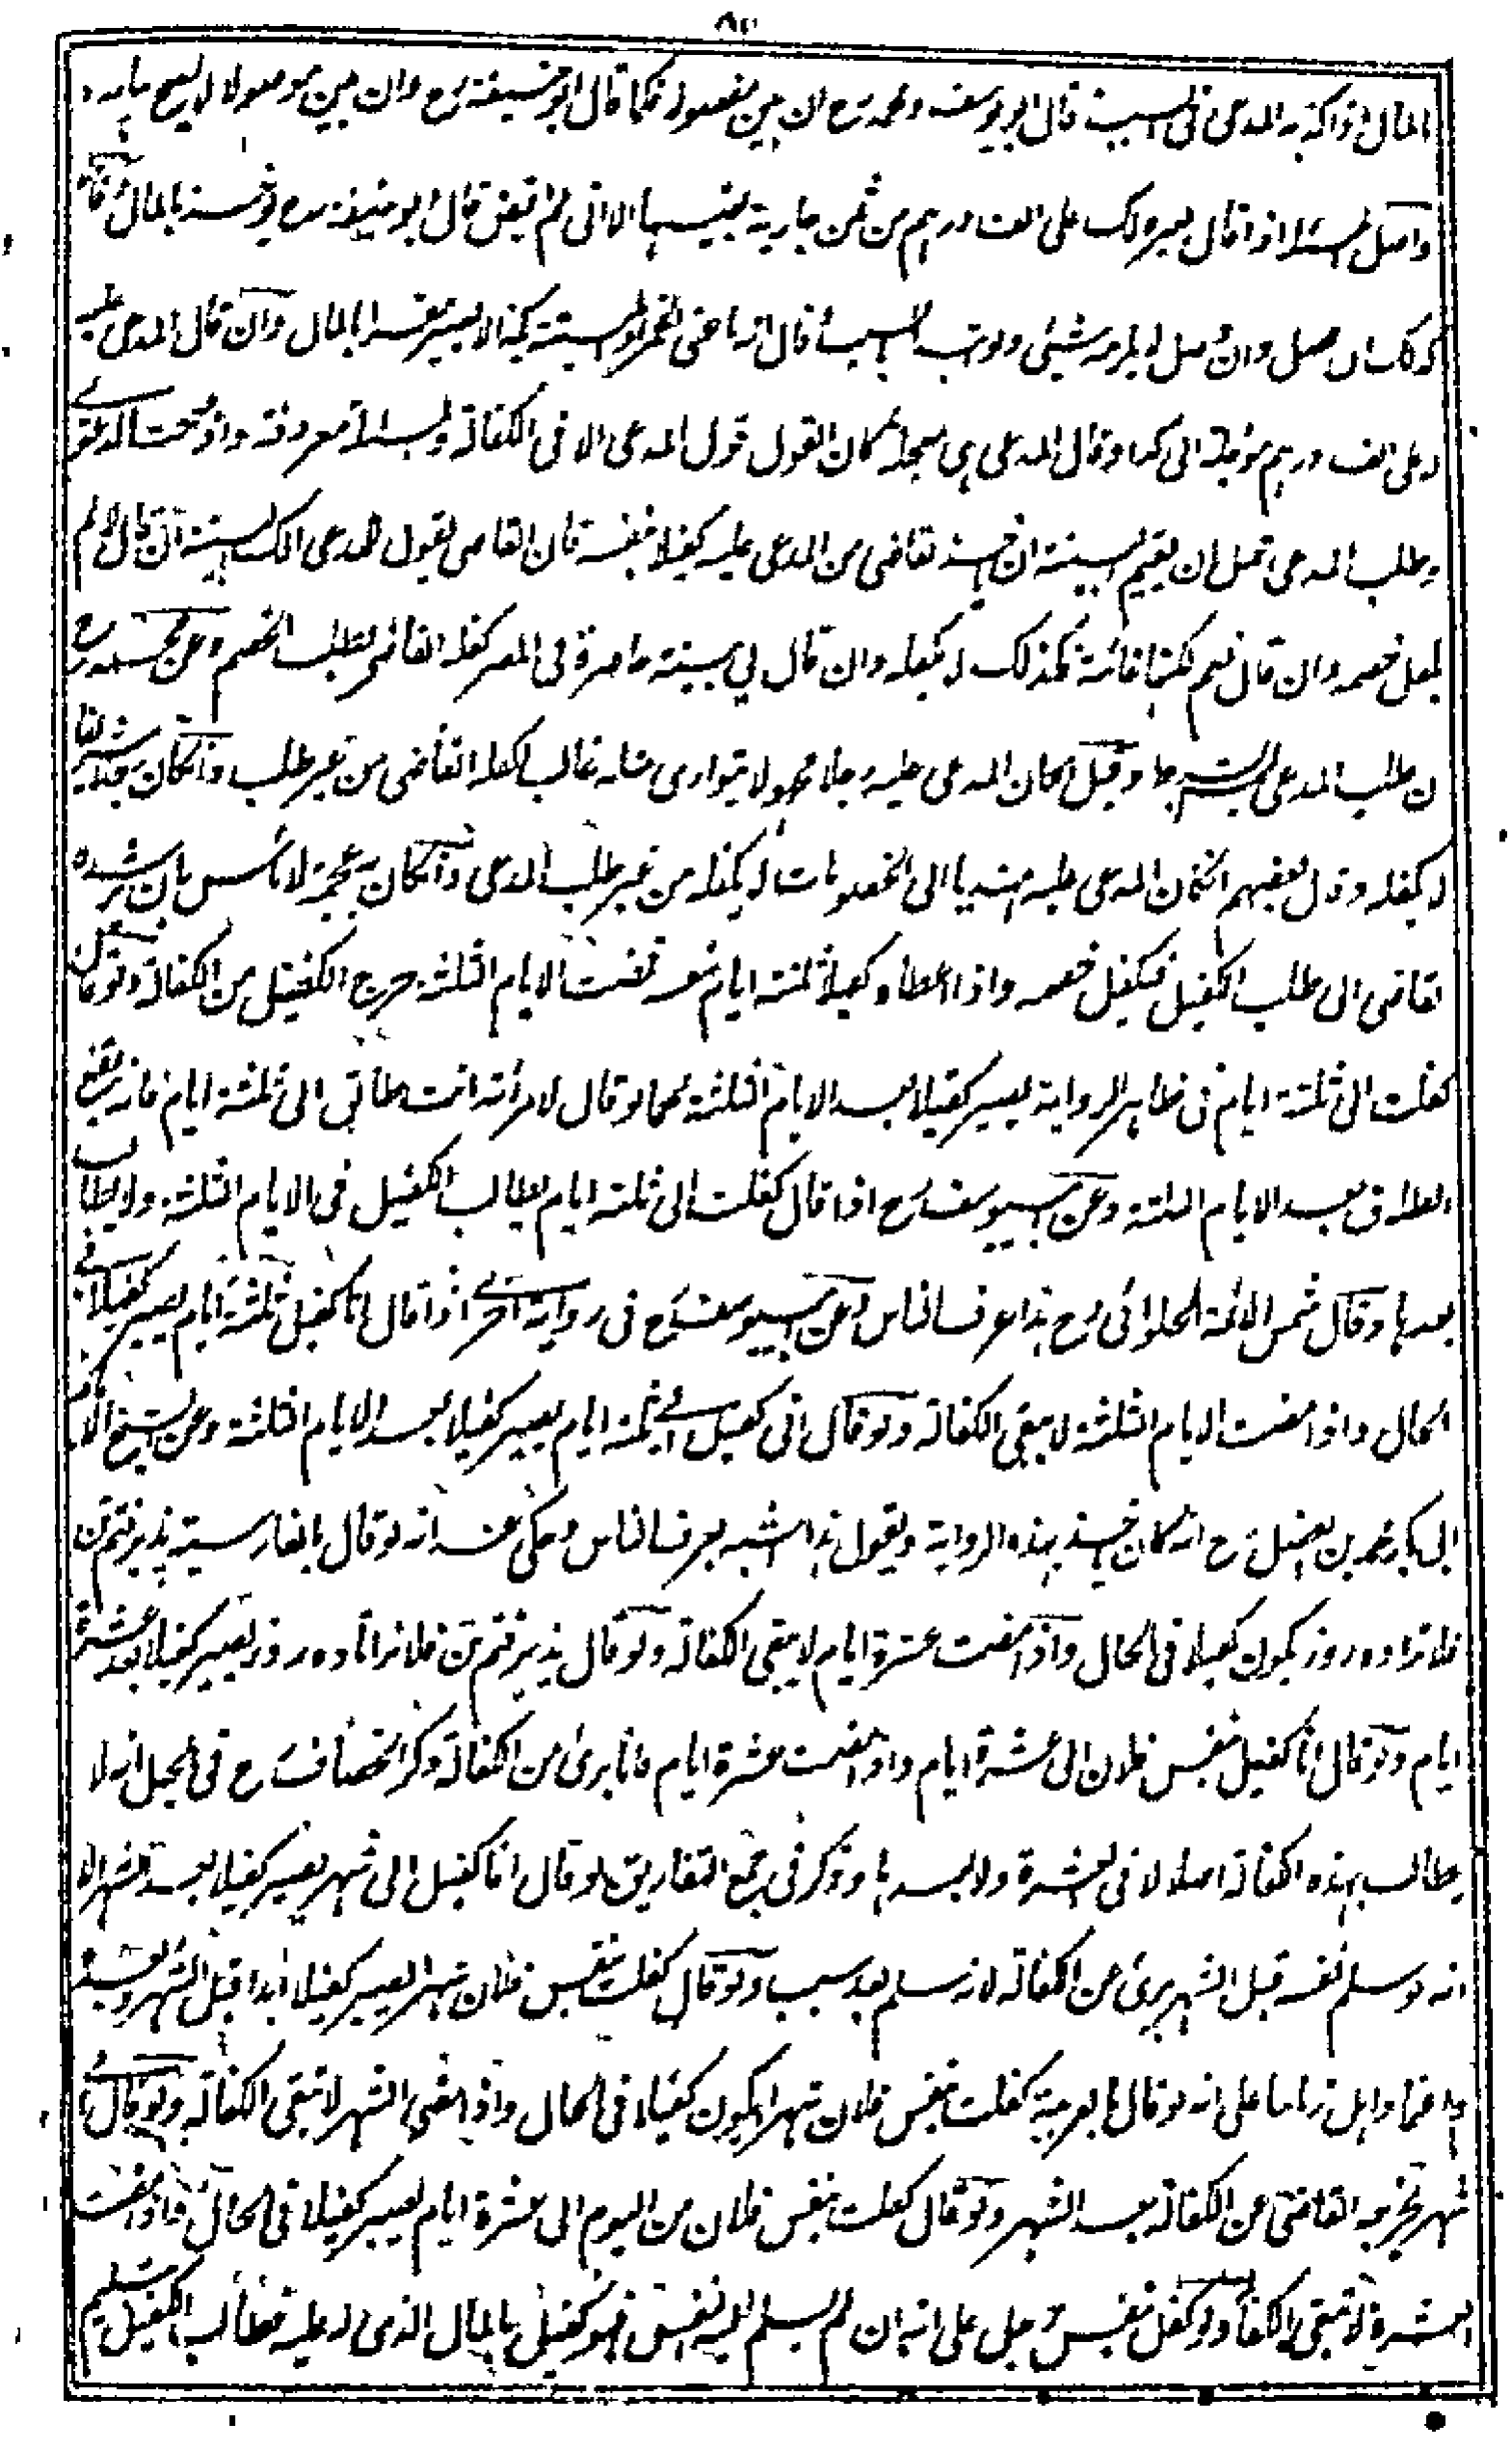 المال اذا كذبه المدعي في السبب قال ابو يوسف ومحمد رح ان بين مفصولا فكما قال ابو حنيفة رح وان بين موصولا لا يصح
واصل المسئلة اذا قال لغيره لك علي الف درهم من ثمن جارية بعتنيها الا اني لم اقبض قال ابو حنيفة رح يؤخذ بالمال
وصل وان وصل لا يلزمه شيئ ولو نسب السبب قال انها حق الخمر او الميتة لا يصير مقرا بالمال وان قال المدعى عليه
له علي الف درهم مؤجلة الى كذا وقال المدعي هي معجلة كان القول قول المدعي الا في الكفالة والمسئلة معروفة واذا صحت الدعوى
وطلب المدعي قبل ان يقيم البينة ان ياخذ القاضي من المدعى عليه كفيلا بنفسه فان القاضي يقول للمدعي الك بينة ان قال لا لم
يكفل خصمه وان قال نعم لكنها غائبة فكذلك لا يكفله وان قال لي بينة حاضرة في المصر كفله القاضي بطلب الخصم وعن محمد رح
ان طلب المدعي وقيل ان كان المدعى عليه رجلا مجهولا يتوارى مثله غالبا كفله القاضي من غير طلب وان كان
لا يكفله وقال بعضهم ان كان المدعي عليه مهتديا الى الخصومات لا يكفله من غير طلب المدعي وان كان به عجمة لا باس بان يرشده
القاضي الى طلب الكفيل فيكفل خصمه واذا اعطاه كفيلا ثلثة ايام فمضت الايام الثلثة خرج الكفيل من الكفالة ولو قال
كفلت الى ثلثة ايام في ظاهر الرواية يصير كفيلا بعد الايام الثلثة كما لو قال لامرأته انت طالق الى ثلثة ايام فانه يقع
الطلاق بعد الايام الثلثة وعن ابي يوسف رح اذا قال كفلت الى ثلثة ايام يطالب الكفيل في الايام الثلثة ولا يطالب
بعدها وقال شمس الائمة الحلوائي رح هذا عرف الناس وعن ابي يوسف رح في رواية اخرى اذا قال انا كفيل ثلثة ايام يصير كفيلا في
الحال واذا مضت الايام الثلثة لا يبقى الكفالة ولو قال اني كفيل الى ثلثة ايام يصير كفيلا بعد الايام الثلثة وعن الشيخ الامام
ابي بكر محمد بن الفضل رح انه كان ياخذ بهذه الرواية ويقول هذا اشبه بعرف الناس وحكي عنه انه لو قال بالفارسية پذيرفتم تن
فلانرا ده روز يكون كفيلا في الحال واذا مضت عشرة ايام لا يبقى الكفالة ولو قال پذيرفتم تن فلانرا تا ده روز يصير كفيلا بعد عشرة
ايام ولو قال انا كفيل بنفس فلان الى عشرة ايام واذا مضت عشرة ايام فانا بريئ من الكفالة ذكر الخصاف رح في الحيل انه لا
يطالب بهذه الكفالة اصلا لا في العشرة ولا بعدها وذكر في جمع التفاريق لو قال انا كفيل الى شهر يصير كفيلا بعد الشهر الا
انه لو سلم نفسه قبل الشهر بريئ عن الكفالة لانه سلم بعد سبب ولو قال كفلت بنفس فلان شهرا يصير كفيلا ابدا قبل الشهر وبعده
واهل زماننا على انه لو قال بالعربية كفلت بنفس فلان شهرا يكون كفيلا في الحال واذا مضى الشهر لا تبقى الكفالة ولو قال
شهر يخرجه القاضي عن الكفالة بعد الشهر ولو قال كفلت بنفس فلان من اليوم الى عشرة ايام يصير كفيلا في الحال فاذا مضت
العشرة لا تبقى الكفالة ولو كفل بنفس رجل على انه ان لم يسلم اليه النفس فهو كفيل بالمال الذي له عليه فطالب الكفيل بتسليم